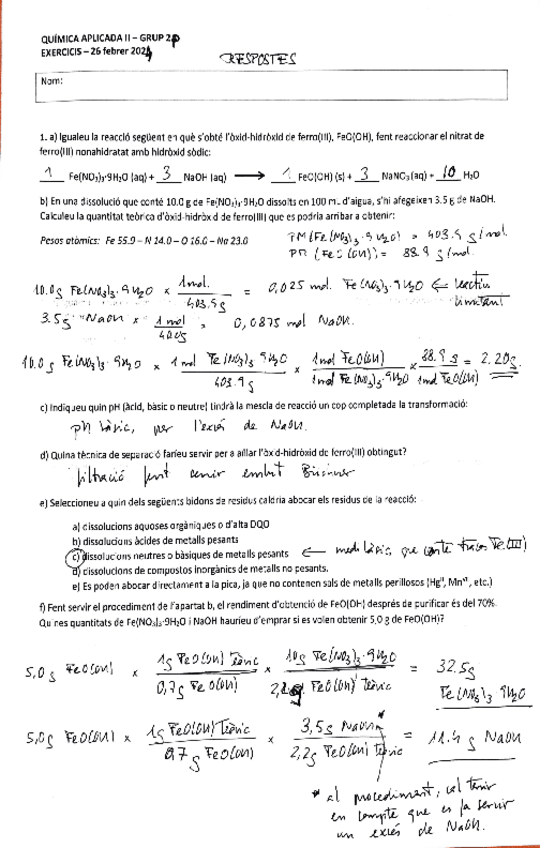 QUÍMICA APLICADA II – GRUP 2P
EXERCICIS – 26 febrer 2024
RESPOSTES
Nom:
1. a) Igualeu la reacció següent en què s'obté l'òxid-hidròxid de ferro(III), FeO(OH), fent reaccionar el nitrat de
ferro(III) nonahidratat amb hidròxid sòdic:
1 Fe(NO₃)₃·9H₂O (aq) + 3 NaOH (aq) → 1 FeO(OH) (s) + 3 NaNO₃ (aq) + 10 H₂O
b) En una dissolució que conté 10.0 g de Fe(NO₃)₃·9H₂O dissolts en 100 mL d'aigua, s'hi afegeixen 3.5 g de NaOH.
Calculeu la quantitat teòrica d'òxid-hidròxid de ferro(III) que es podria arribar a obtenir:
Pesos atòmics: Fe 55.9 – N 14.0 – O 16.0 – Na 23.0
PM (Fe(NO₃)₃·9H₂O) = 403.9 g/mol.
PM (FeO(OH)) = 88.9 g/mol.
10.0g Fe(NO₃)₃·9H₂O × 1 mol. / 403.9g = 0,025 mol. Fe(NO₃)₃·9H₂O ← reactiu limitant
3.5g NaOH × 1 mol / 40.0g = 0,0875 mol NaOH.
10.0g Fe(NO₃)₃·9H₂O × 1 mol Fe(NO₃)₃·9H₂O / 403.9g × 1 mol FeO(OH) / 1 mol Fe(NO₃)₃·9H₂O × 88.9 g / 1 mol FeO(OH) = 2.20g.
c) Indiqueu quin pH (àcid, bàsic o neutre) tindrà la mescla de reacció un cop completada la transformació:
pH bàsic, per l'excés de NaOH.
d) Quina tècnica de separació faríeu servir per a aïllar l'òxid-hidròxid de ferro(III) obtingut?
Filtració fent servir embut Büchner
e) Seleccioneu a quin dels següents bidons de residus caldria abocar els residus de la reacció:
a) dissolucions aquoses orgàniques o d'alta DQO
b) dissolucions àcides de metalls pesants
c) dissolucions neutres o bàsiques de metalls pesants ← medi bàsic que conté traces Fe(III)
d) dissolucions de compostos inorgànics de metalls no pesants.
e) Es poden abocar directament a la pica, ja que no contenen sals de metalls perillosos (Hgᴵᴵ, Mnᵛᴵᴵ, etc.)
f) Fent servir el procediment de l'apartat b, el rendiment d'obtenció de FeO(OH) després de purificar és del 70%.
Quines quantitats de Fe(NO₃)₃·9H₂O i NaOH hauríeu d'emprar si es volen obtenir 5,0 g de FeO(OH)?
5,0g FeO(OH) × 1g FeO(OH) teòric / 0,7g FeO(OH) × 10g Fe(NO₃)₃·9H₂O / 2,2g FeO(OH) teòric = 32.5g Fe(NO₃)₃·9H₂O
5,0g FeO(OH) × 1g FeO(OH) teòric / 0,7g FeO(OH) × 3,5g NaOH* / 2,2g FeO(OH) teòric = 11.4 g NaOH
* al procediment, cal tenir
en compte que es fa servir
un excés de NaOH.